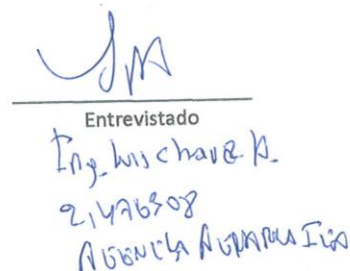 Entrevistado
Ing. Luis Chavez A.
21476308
AGENCIA AGRARIA ICA